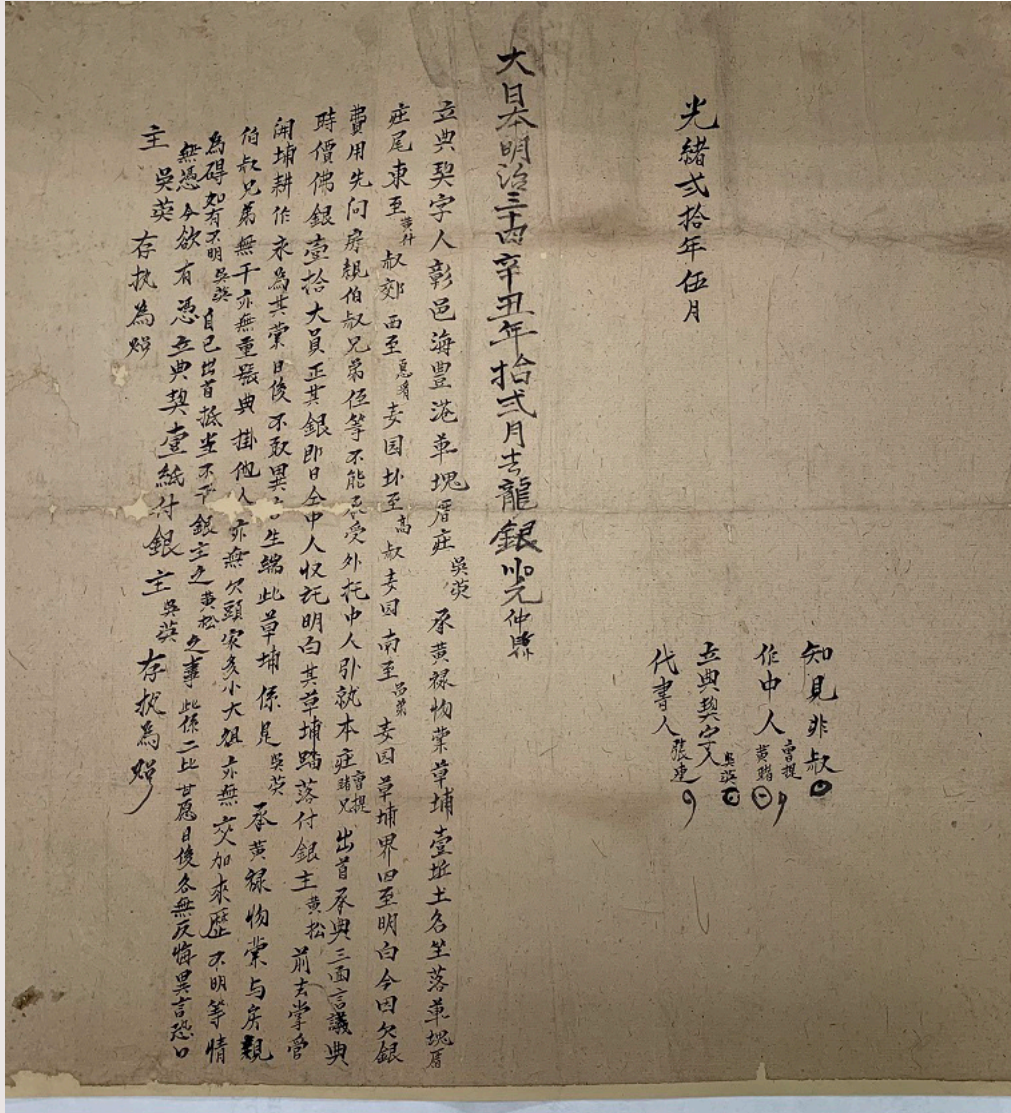 知見非叔
作中人 曾提 黃賭
立典契字人 吳英
光緒弍拾年伍月
代書人 張連
大日本明治三十四辛丑年拾弍月去龍銀 元仲縣
立典契字人彰邑海豐港單塊厝庄吳英承黃祿物業草埔壹坵土名坐落單塊厝
庄尾東至黃 叔郊西至 麥园北至高叔麥因南至 弟麥因草埔界四至明白今因欠銀
費用先问房親伯叔兄弟侄等不能承受外托中人引就本庄曾提賭兄出首承典三面言議典
時價佛銀壹拾大員正其銀即日仝中人収訖明白其草埔踏落付銀主黃松前去掌管
開埔耕作永為其業日後不敢異言生端此草埔係是吳英承黃祿物業与房親
伯叔兄弟無干亦無重張典掛他人亦無欠頭家多小大租亦無交加來歷不明等情
為碍如有不明吳英自己出首抵当不干銀主之黃松之事此係二比甘愿日後各無反悔異言恐口
無憑今欲有憑立典契壹紙付銀主吳英存执為炤
主吳英存执為炤